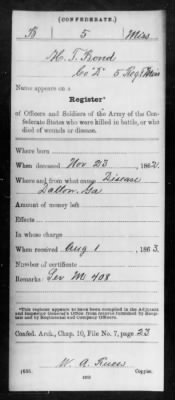 (CONFEDERATE.)
5 Miss
H. T. Bond
Co "D" 5 Regt Miss
Name appears on a
Register*
of Officers and Soldiers of the Army of the Confederate States who were killed in battle, or who
died of wounds or disease.
Where born
When deceased Nov 23, 1862.
Where and from what cause Disease
Dalton, Ga
Amount of money left
Effects
In whose charge
When received Aug 1, 1863.
Number of certificate
Remarks: Ser M 408
*This register appears to have been compiled in the Adjutant
and Inspector General's Office from records furnished by
and by Regimental and Company Officers.
Confed. Arch., Chap. 10, File No. 7, page 23
W. A.
Copyist.